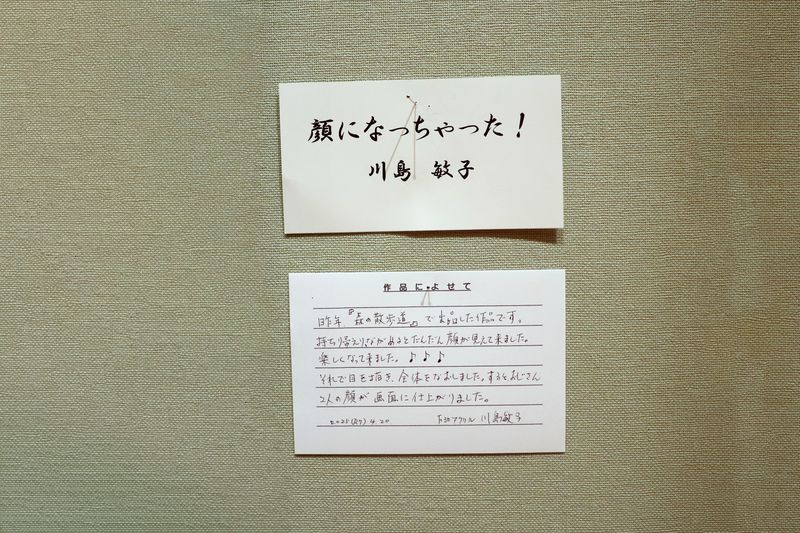 顔になっちゃった!
川島 敏子
作品によせて
昨年、『森の散歩道』で出品した作品です。
持ち帰えり、ながめるとだんだん顔が見えて来ました。
楽しくなって来ました。♪♪♪
それで目を描き、全体をなおしました。するとおじさん
2人の顔が画面に仕上がりました。
2025(R7) 4.20 アクリル 川島敏子